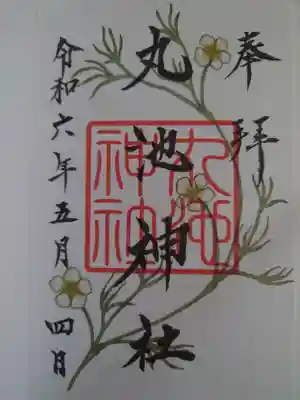 奉拝
丸池神社
丸池神社
令和六年五月四日